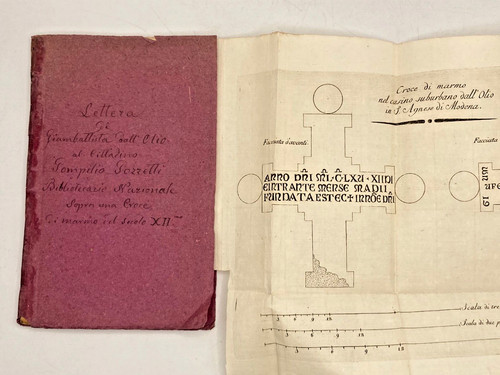 Lettera
di
Giambattista dall'Olio
al Cittadino
Pompilio Pozzetti
Bibliotecario Nazionale
Sopra una Croce
di marmo del secolo XII
Croce di marmo
nel casino suburbano dall'Olio
in S. Agnese di Modena.
Facciata d'avanti.
Facciata
ANNO DNI MIL C LXV XIII DI
EINTRANTE MERSE MADII
FUNDATA EST EC† INNOE DNI
Scala di tre
3 6 9 12
Scala di due p
3 6 9 12